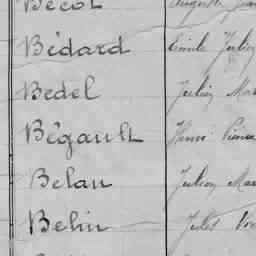 Bécot Auguste
Bédard Emile Julien
Bedel Julien
Bégault Henri Pierre
Belan Julien
Belin Jules